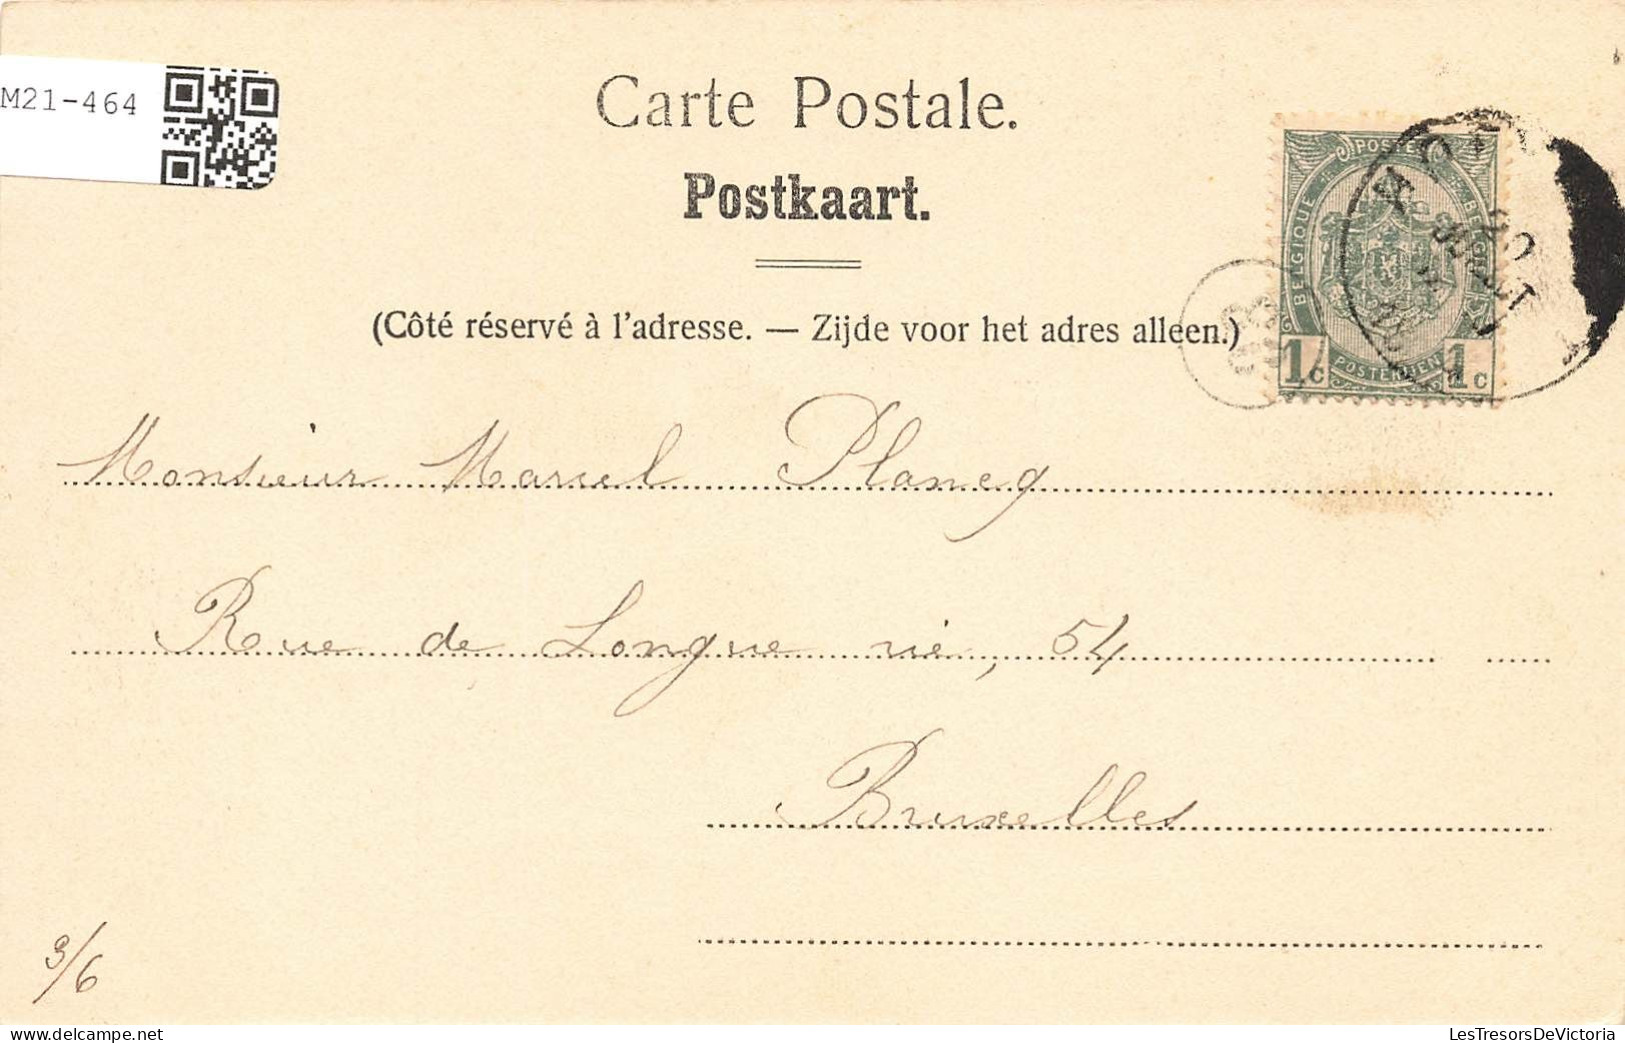 M21-464
Carte Postale.
Postkaart.
(Côté réservé à l'adresse. — Zijde voor het adres alleen.)
POSTES
BELGIQUE
BELGIE
1c POSTERIJEN 1c
20
Monsieur Marcel Planeg
Rue de Longue vie, 54
Bruxelles
3/6
LesTresorsDeVictoria